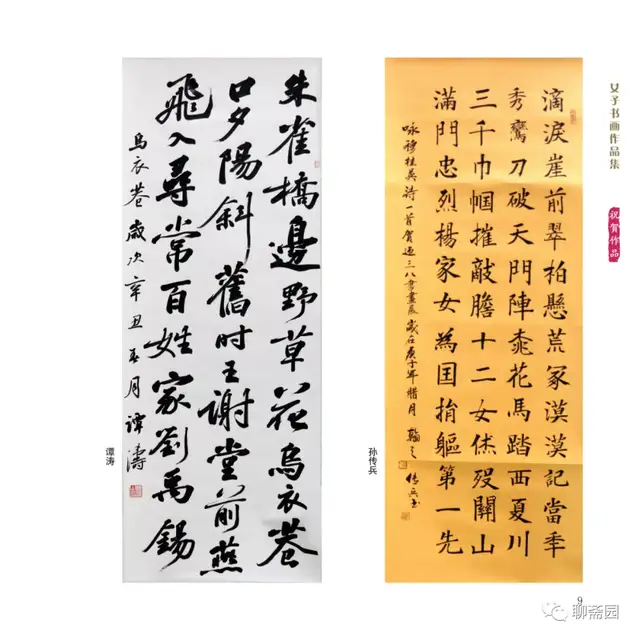 女子书画作品集
祝贺作品
滴淚崖前翠柏懸荒冢漠漠記當秊
秀鸞刀破天門陣桃花馬踏西夏川
三千巾幗摧敵膽十二女傑歿關山
滿門忠烈楊家女為国捐軀第一先
咏穆桂英詩一首賀迎三八書畫展歲在庚子年腊月
孙传兵
朱雀橋邊野草花烏衣巷
口夕陽斜舊时王謝堂前燕
飛入尋常百姓家劉禹錫
烏衣巷歲次辛丑春月譚濤
谭涛
9
聊斋园